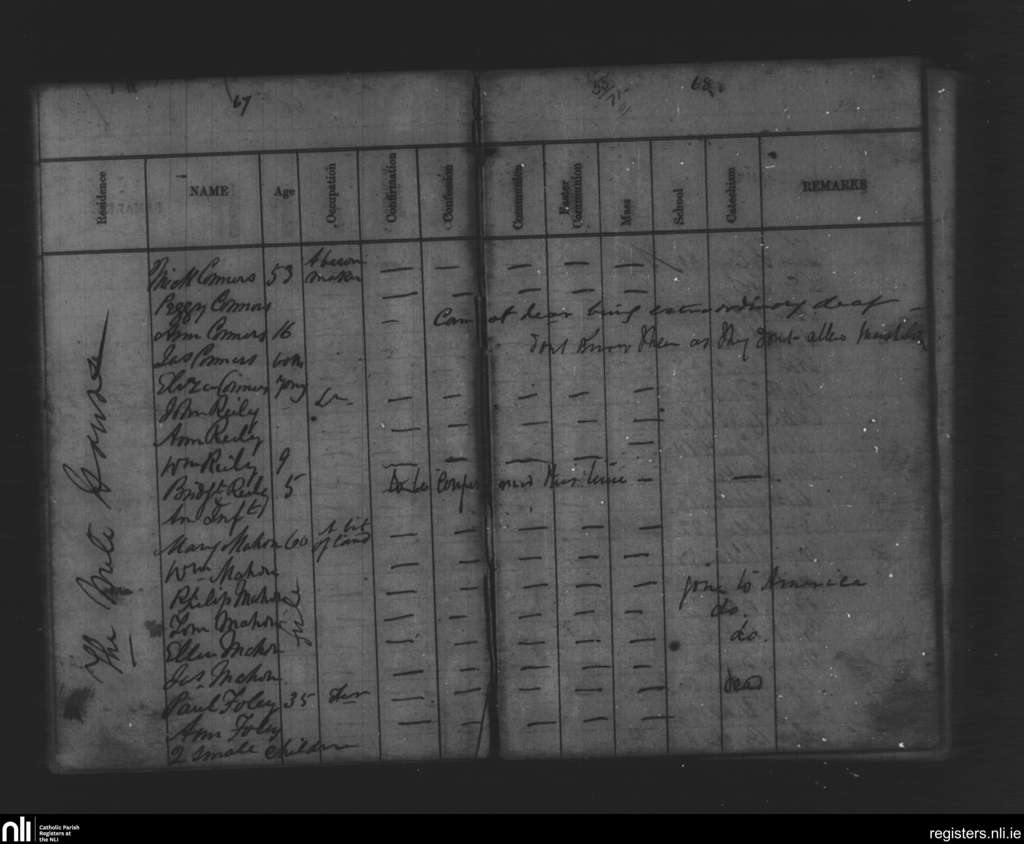 67
68
Residence NAME Age Occupation Confirmation Confession Communion Easter Communion Mass School Catechism REMARKS
The House
Mick Connors 53 A besom maker — — — — —
Peggy Connors — — — — —
Ann Connors 16 — Cannot hear being extraordinary deaf —
Jas Connors dont know them as they dont
Eliza Connors young
John Reily Do — — — — —
Ann Reily — — — — —
Wm Reily 9 — — — — —
Bridgt Reily 5 to be this time — —
An Inft
Mary Mahon 60 A bit of land — — — — —
Wm Mahon — — — — —
Philip Mahon — — — — — gone to America
Tom Mahon — — — — — do.
Ellen Mahon — — — — — do.
Jas Mahon — — — — —
Paul Foley 35 — — — — — dead
Ann Foley — — — — —
2 small children
nli Catholic Parish Registers at the NLI
registers.nli.ie